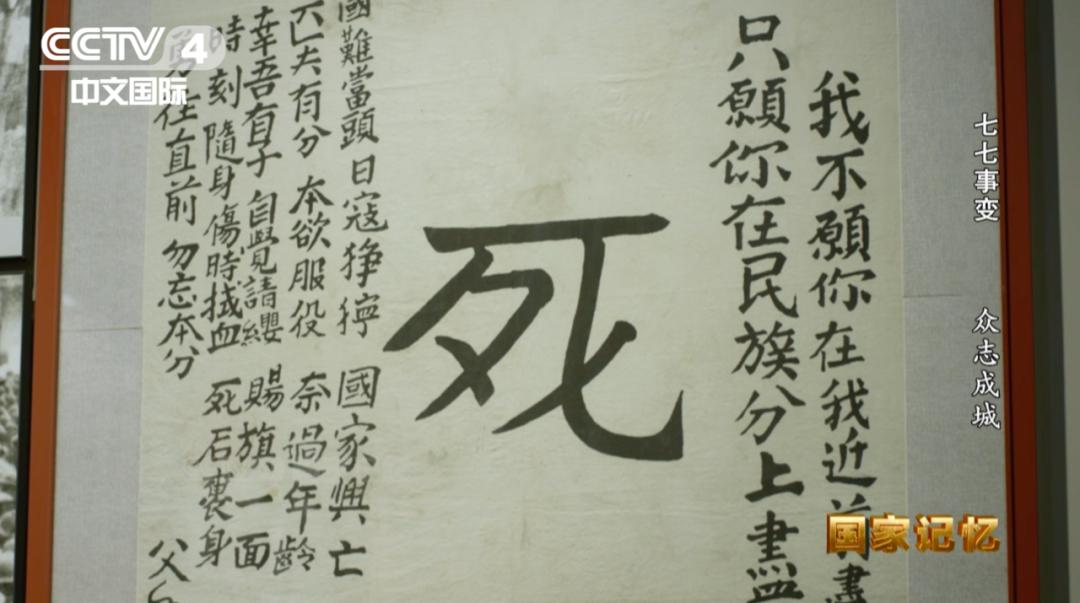 CCTV 4
中文国际
我不願你在我近前盡
只願你在民族分上盡
死
國難當頭 日寇猙獰 國家興亡
匹夫有分 本欲服役 奈過年齡
幸吾有子 自覺請纓 賜旗一面
時刻隨身 傷時拭血 死后裹身
勇往直前 勿忘本分
父
七七事变 众志成城
国家记忆